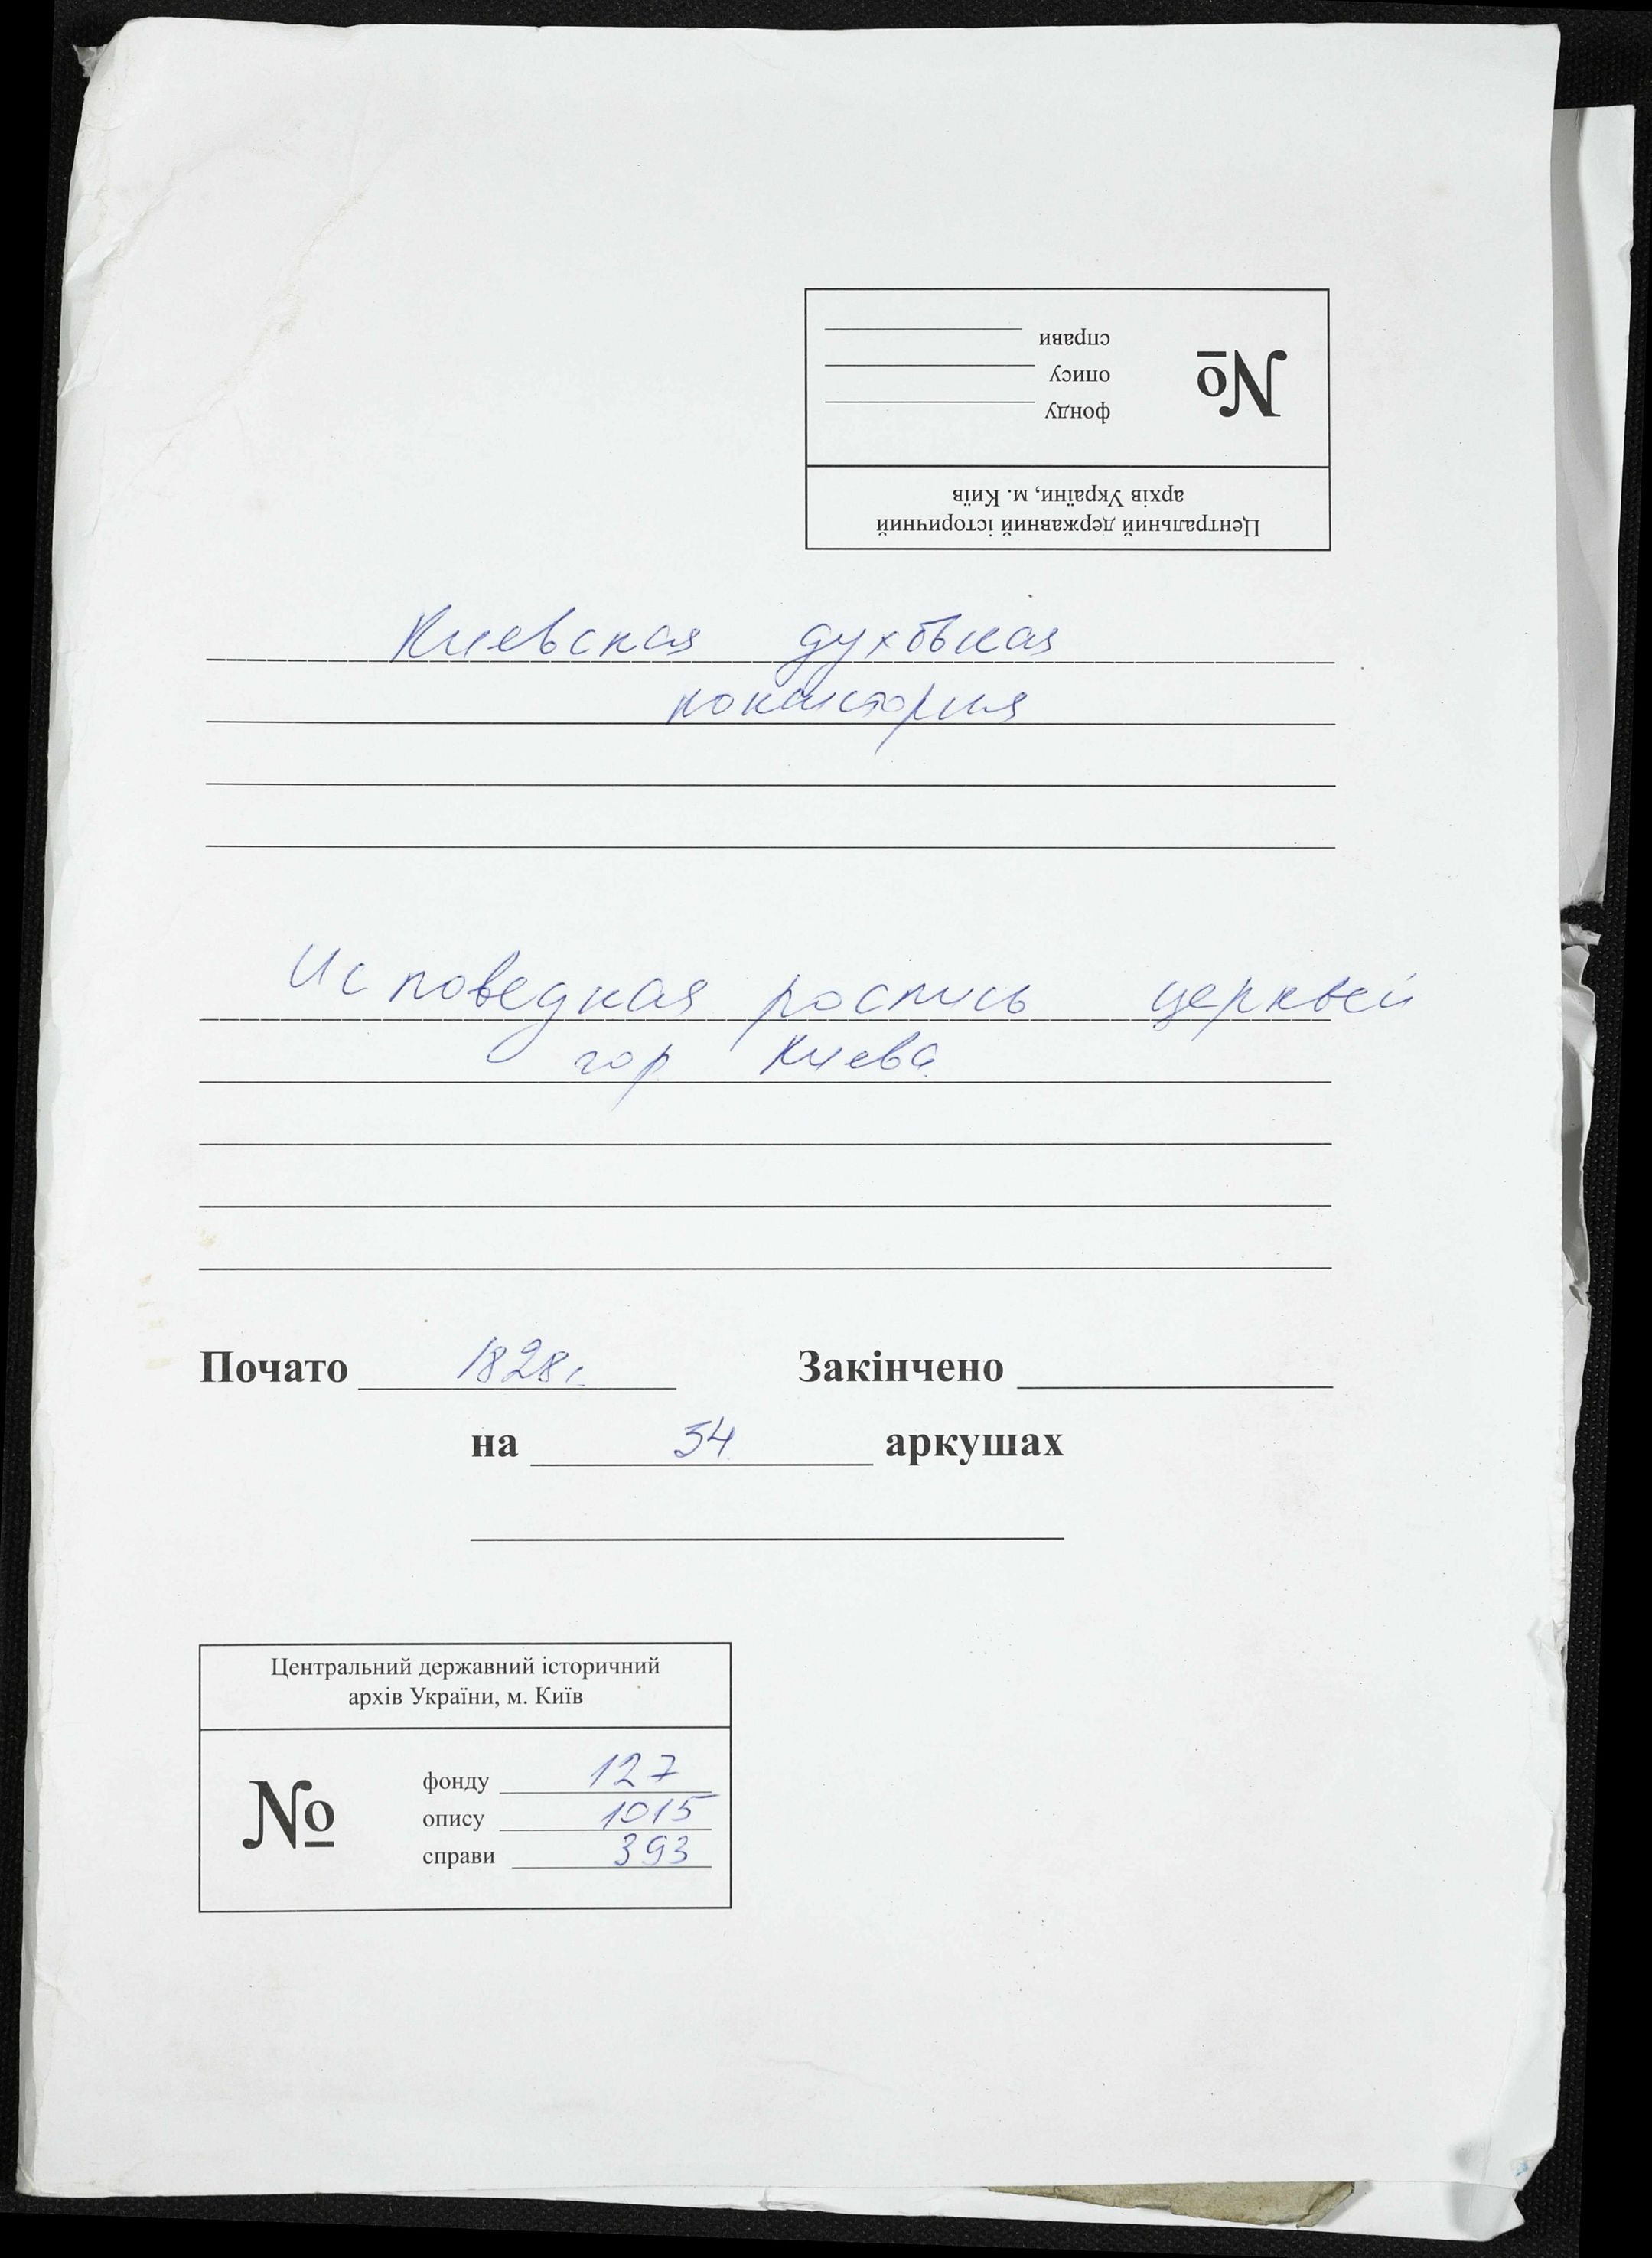 Центральний державний історичний
архів України, м. Київ
№
фонду
опису
справи
Киевская духовная
консистория
Исповедная роспись церквей
гор Киева
Почато 1828 г. Закінчено
на 54 аркушах
Центральний державний історичний
архів України, м. Київ
№
фонду 127
опису 1015
справи 393